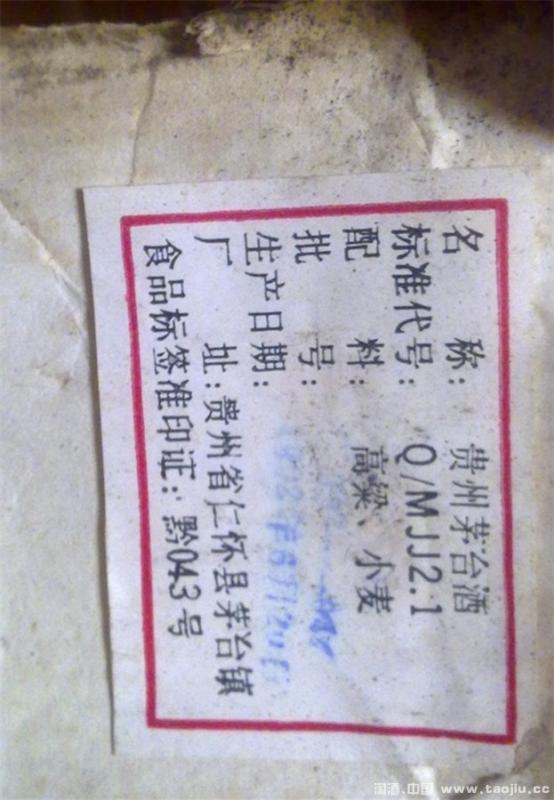 名 称：贵州茅台酒
标准代号：Q/MJJ2.1
配 料：高粱、小麦
批 号：
生产日期：
厂 址：贵州省仁怀县茅台镇
食品标签准印证：黔043号
淘酒.中国 www.taojiu.cc